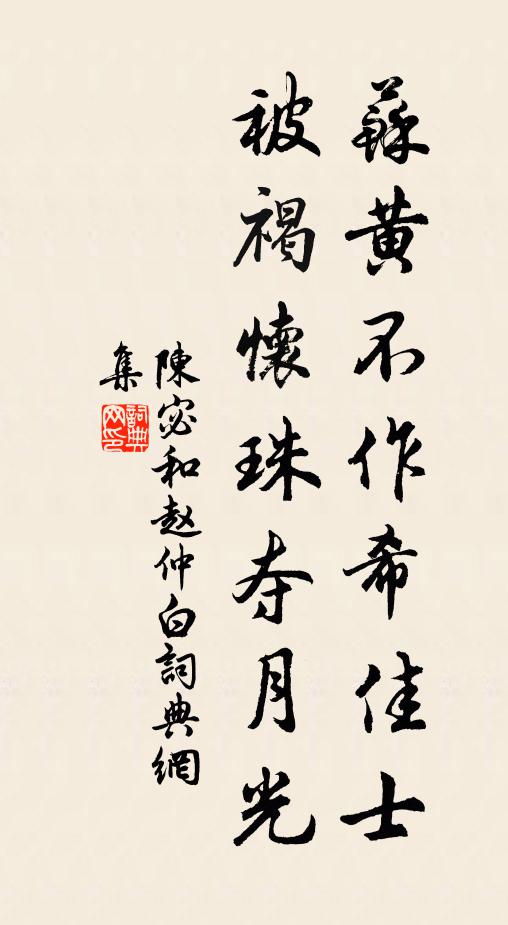 蘇黃不作希佳士
被褐懷珠夺月光
陳宓和赵仲白詞典網
集
詞典网印